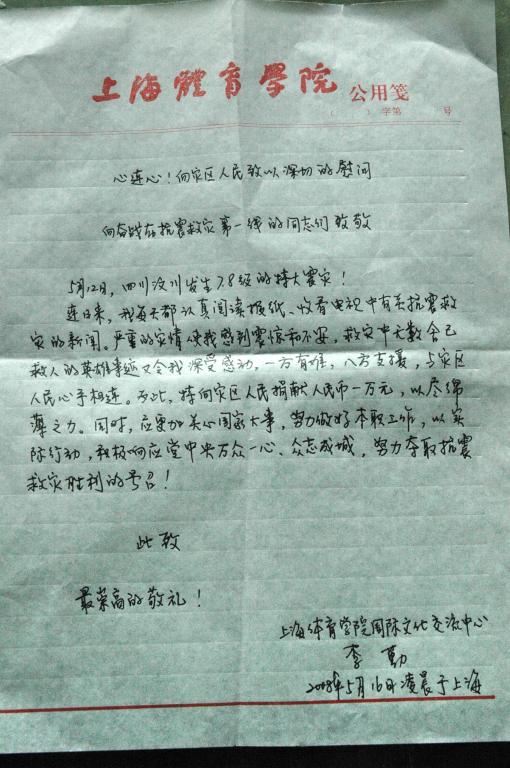 上海體育學院 公用笺
（ ）字第 号
心连心！向灾区人民致以深切的慰问
向奋战在抗震救灾第一线的同志们致敬
5月12日，四川汶川发生7.8级的特大震灾！
连日来，我每天都认真阅读报纸、收看电视中有关抗震救
灾的新闻。严重的灾情使我感到震惊和不安，救灾中无数舍己
救人的英雄事迹又令我深受感动，一方有难，八方支援，与灾区
人民心手相连。为此，特向灾区人民捐献人民币一万元，以尽绵
薄之力。同时，应更加关心国家大事，努力做好本职工作，以实
际行动，积极响应党中央万众一心、众志成城，努力夺取抗震
救灾胜利的号召！
此致
最崇高的敬礼！
上海体育学院国际文化交流中心
李勤
2008年5月16日凌晨于上海